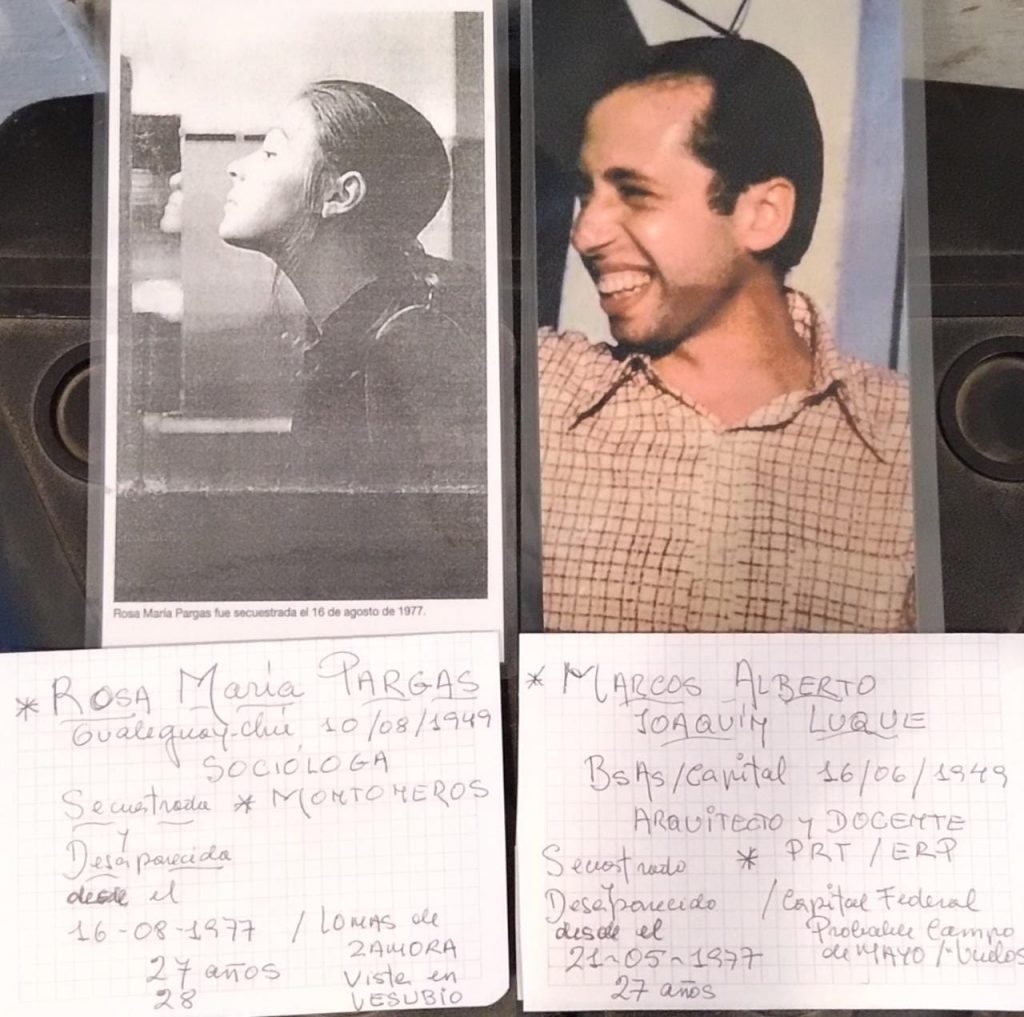 Rosa María Pargas fue secuestrada el 16 de agosto de 1977.
* ROSA María PARGAS
Gualeguay-chú 10/08/1949
SOCIÓLOGA
Secuestrada * MONTONEROS
y
Desaparecida
desde el
16-08-1977 / LOMAS de
ZAMORA
27 años Vista en
28 VESUBIO
* MARCOS ALBERTO
JOAQUÍN LUQUE
BsAs/Capital 16/06/1949
ARQUITECTO y DOCENTE
Secuestrado * PRT / ERP
y
Desaparecido / Capital Federal
desde el Probable Campo
21-05-1977 de MAYO / Vuelos
27 años